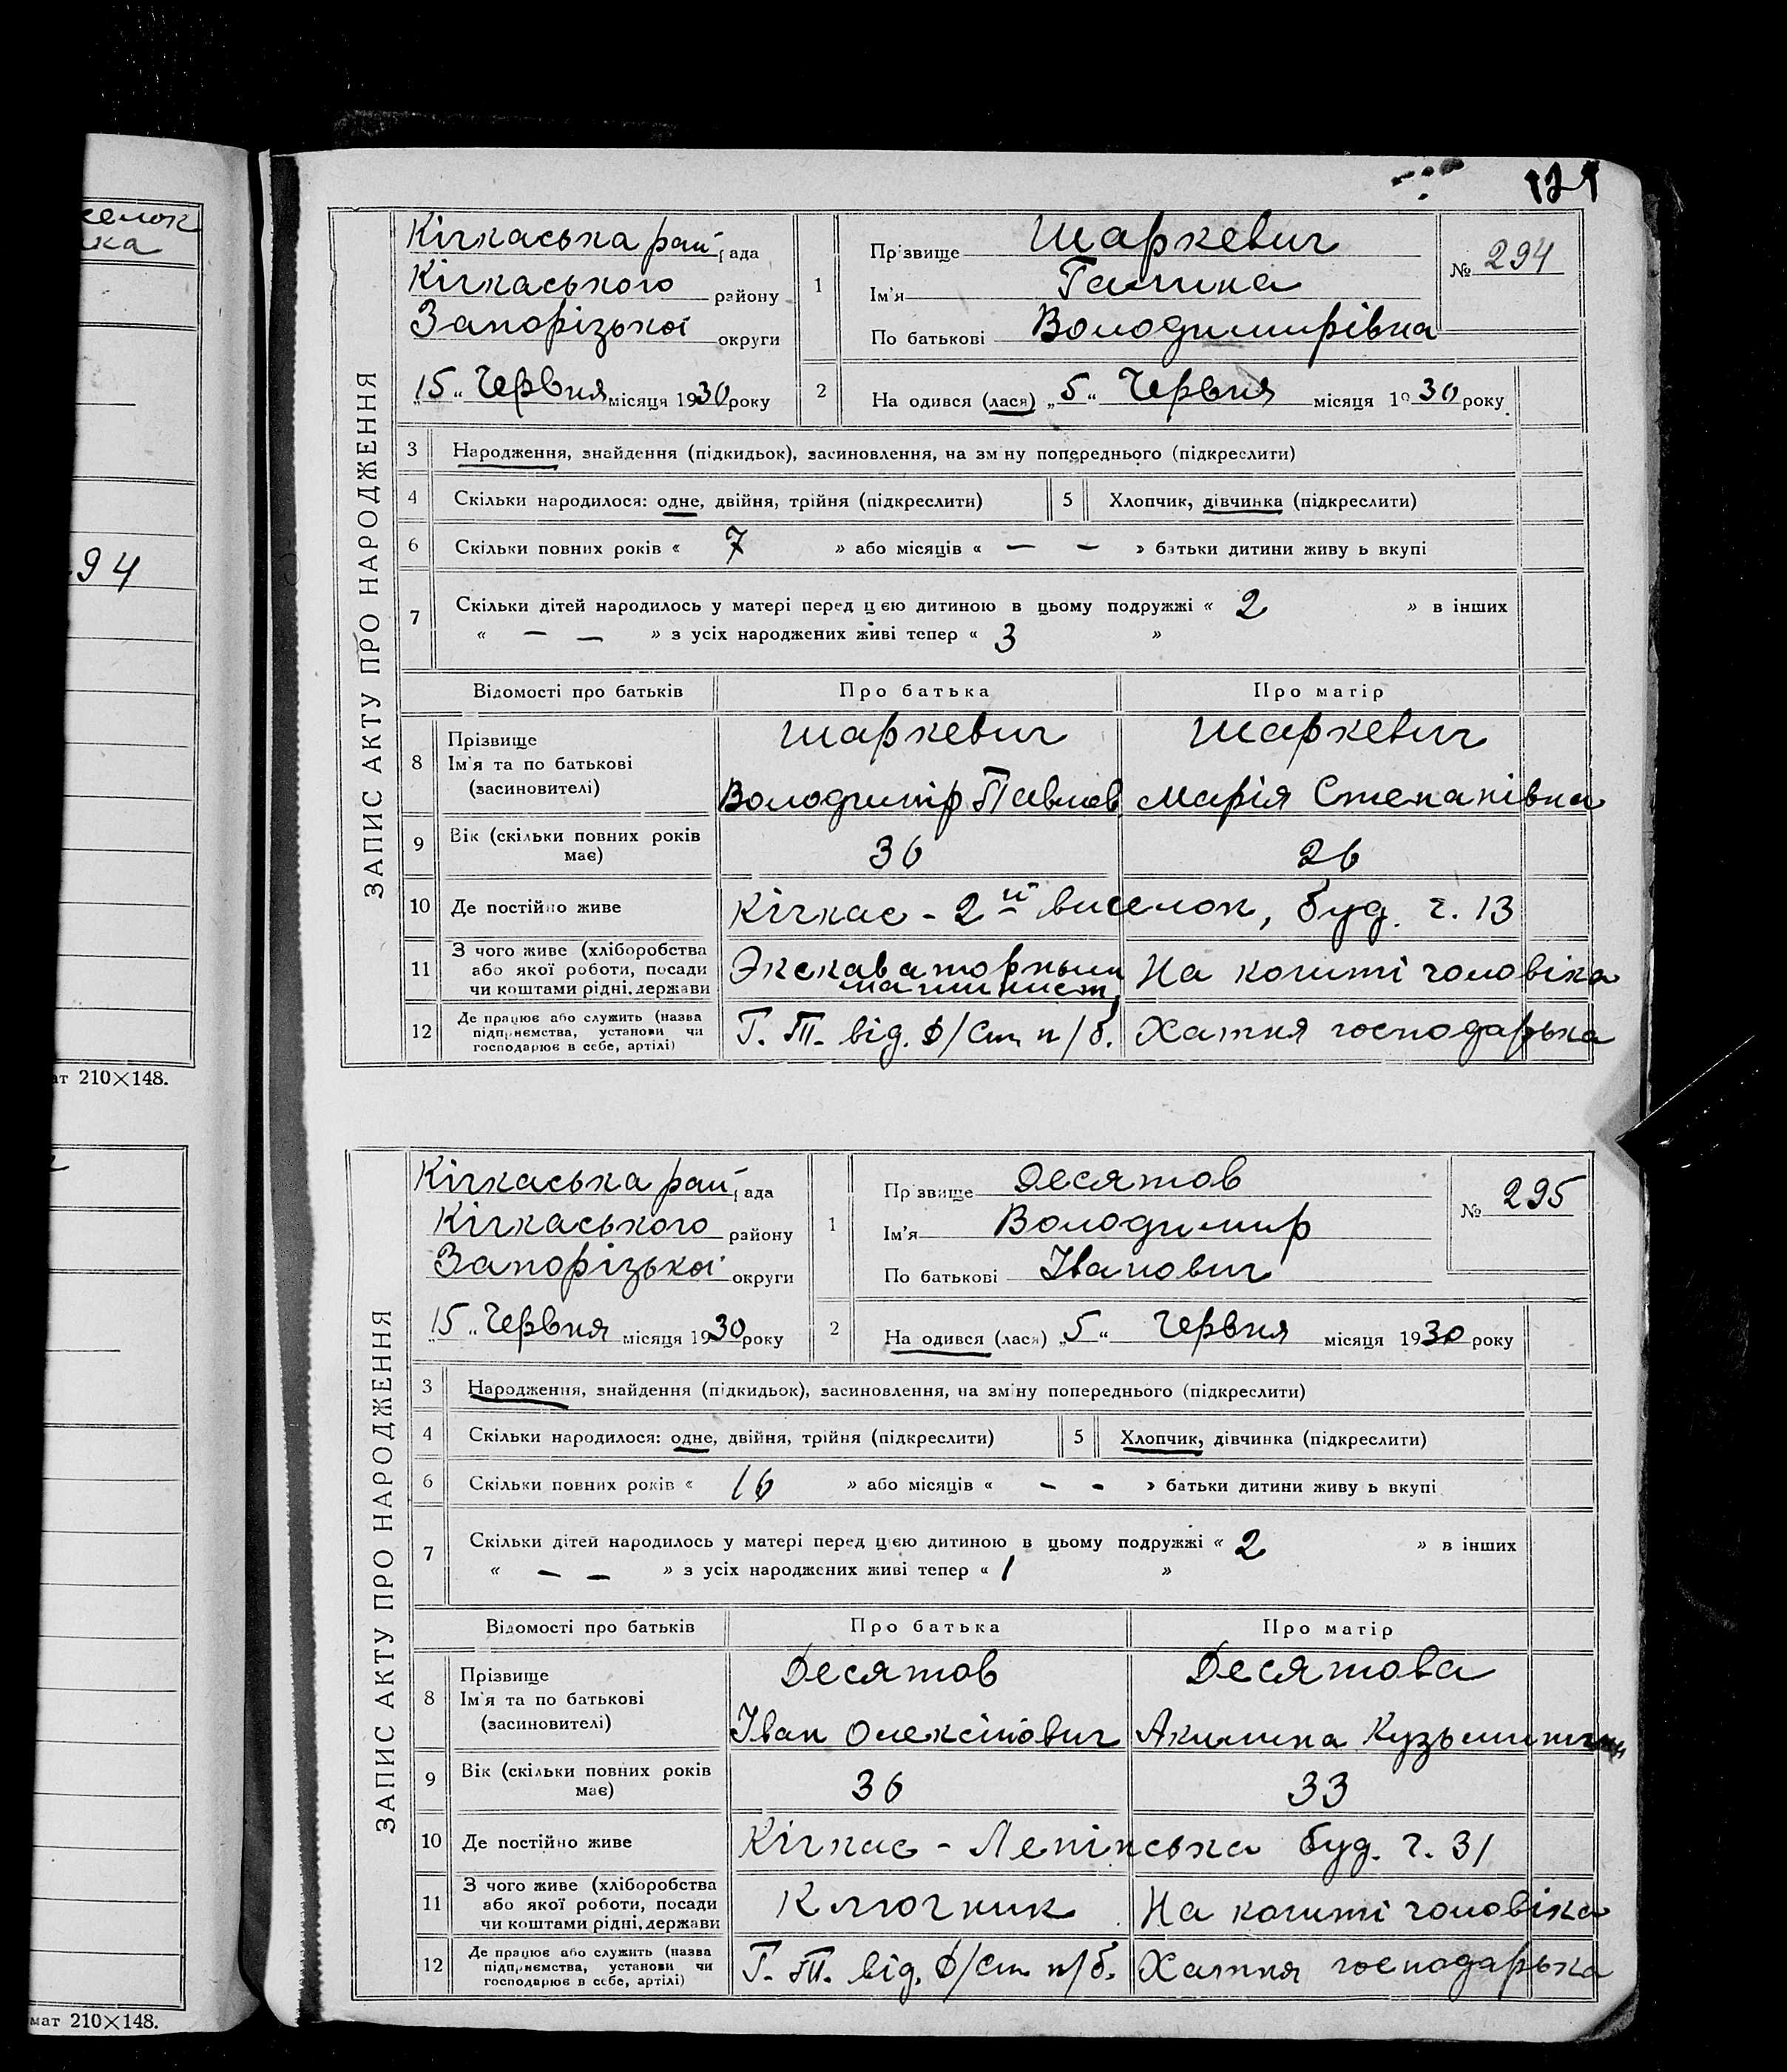 селок
ка
94
ат 210×148.
мат 210×148.
121
ЗАПИС АКТУ ПРО НАРОДЖЕННЯ
Кічкаська рай рада
Кічкаського району
Запорізької округи
„15“ Червня місяця 1930 року
1
Прізвище Шаркевич
Ім'я Галина
По батькові Володимирівна
№ 294
2 На одився (лася) „5“ Червня місяця 1930 року
3 Народження, знайдення (підкидьок), засиновлення, на зміну попереднього (підкреслити)
4 Скільки народилося: одне, двійня, трійня (підкреслити) 5 Хлопчик, дівчинка (підкреслити)
6 Скільки повних років « 7 » або місяців « — — » батьки дитини живу ь вкупі
7 Скільки дітей народилось у матері перед цією дитиною в цьому подружжі « 2 » в інших
« — — » з усіх народжених живі тепер « 3 »
Відомості про батьків Про батька Про матір
8 Прізвище Ім'я та по батькові (засиновителі)
Шаркевич Шаркевич
Володимір Павлов. Марія Степанівна
9 Вік (скільки повних років має) 36 26
10 Де постійно живе Кічкас - 2й виселок, буд. ч. 13
11 З чого живе (хліборобства
або якої роботи, посади
чи коштами рідні, держави
Экскаваторным
машинист На кошті чоловіка
12 Де працює або служить (назва
підприємства, установи чи
господарює в себе, артілі)
Г. Т. від. Ф/Ст п/б. Хатня господарька
ЗАПИС АКТУ ПРО НАРОДЖЕННЯ
Кічкаська рай рада
Кічкаського району
Запорізької округи
„15“ Червня місяця 1930 року
1
Прізвище Десятов
Ім'я Володимир
По батькові Іванович
№ 295
2 На одився (лася) „5“ Червня місяця 1930 року
3 Народження, знайдення (підкидьок), засиновлення, на зміну попереднього (підкреслити)
4 Скільки народилося: одне, двійня, трійня (підкреслити) 5 Хлопчик, дівчинка (підкреслити)
6 Скільки повних років « 16 » або місяців « - - » батьки дитини живу ь вкупі
7 Скільки дітей народилось у матері перед цією дитиною в цьому подружжі « 2 » в інших
« — — » з усіх народжених живі тепер « 1 »
Відомості про батьків Про батька Про матір
8 Прізвище Ім'я та по батькові (засиновителі)
Десятов Десятова
Іван Олексійович Акилина
9 Вік (скільки повних років має) 36 33
10 Де постійно живе Кічкас - Ленінська буд. ч. 31
11 З чого живе (хліборобства
або якої роботи, посади
чи коштами рідні, держави
Ключник На кошті чоловіка
12 Де працює або служить (назва
підприємства, установи чи
господарює в себе, артілі)
Г. Т. від. Ф/Ст п/б. Хатня господарька